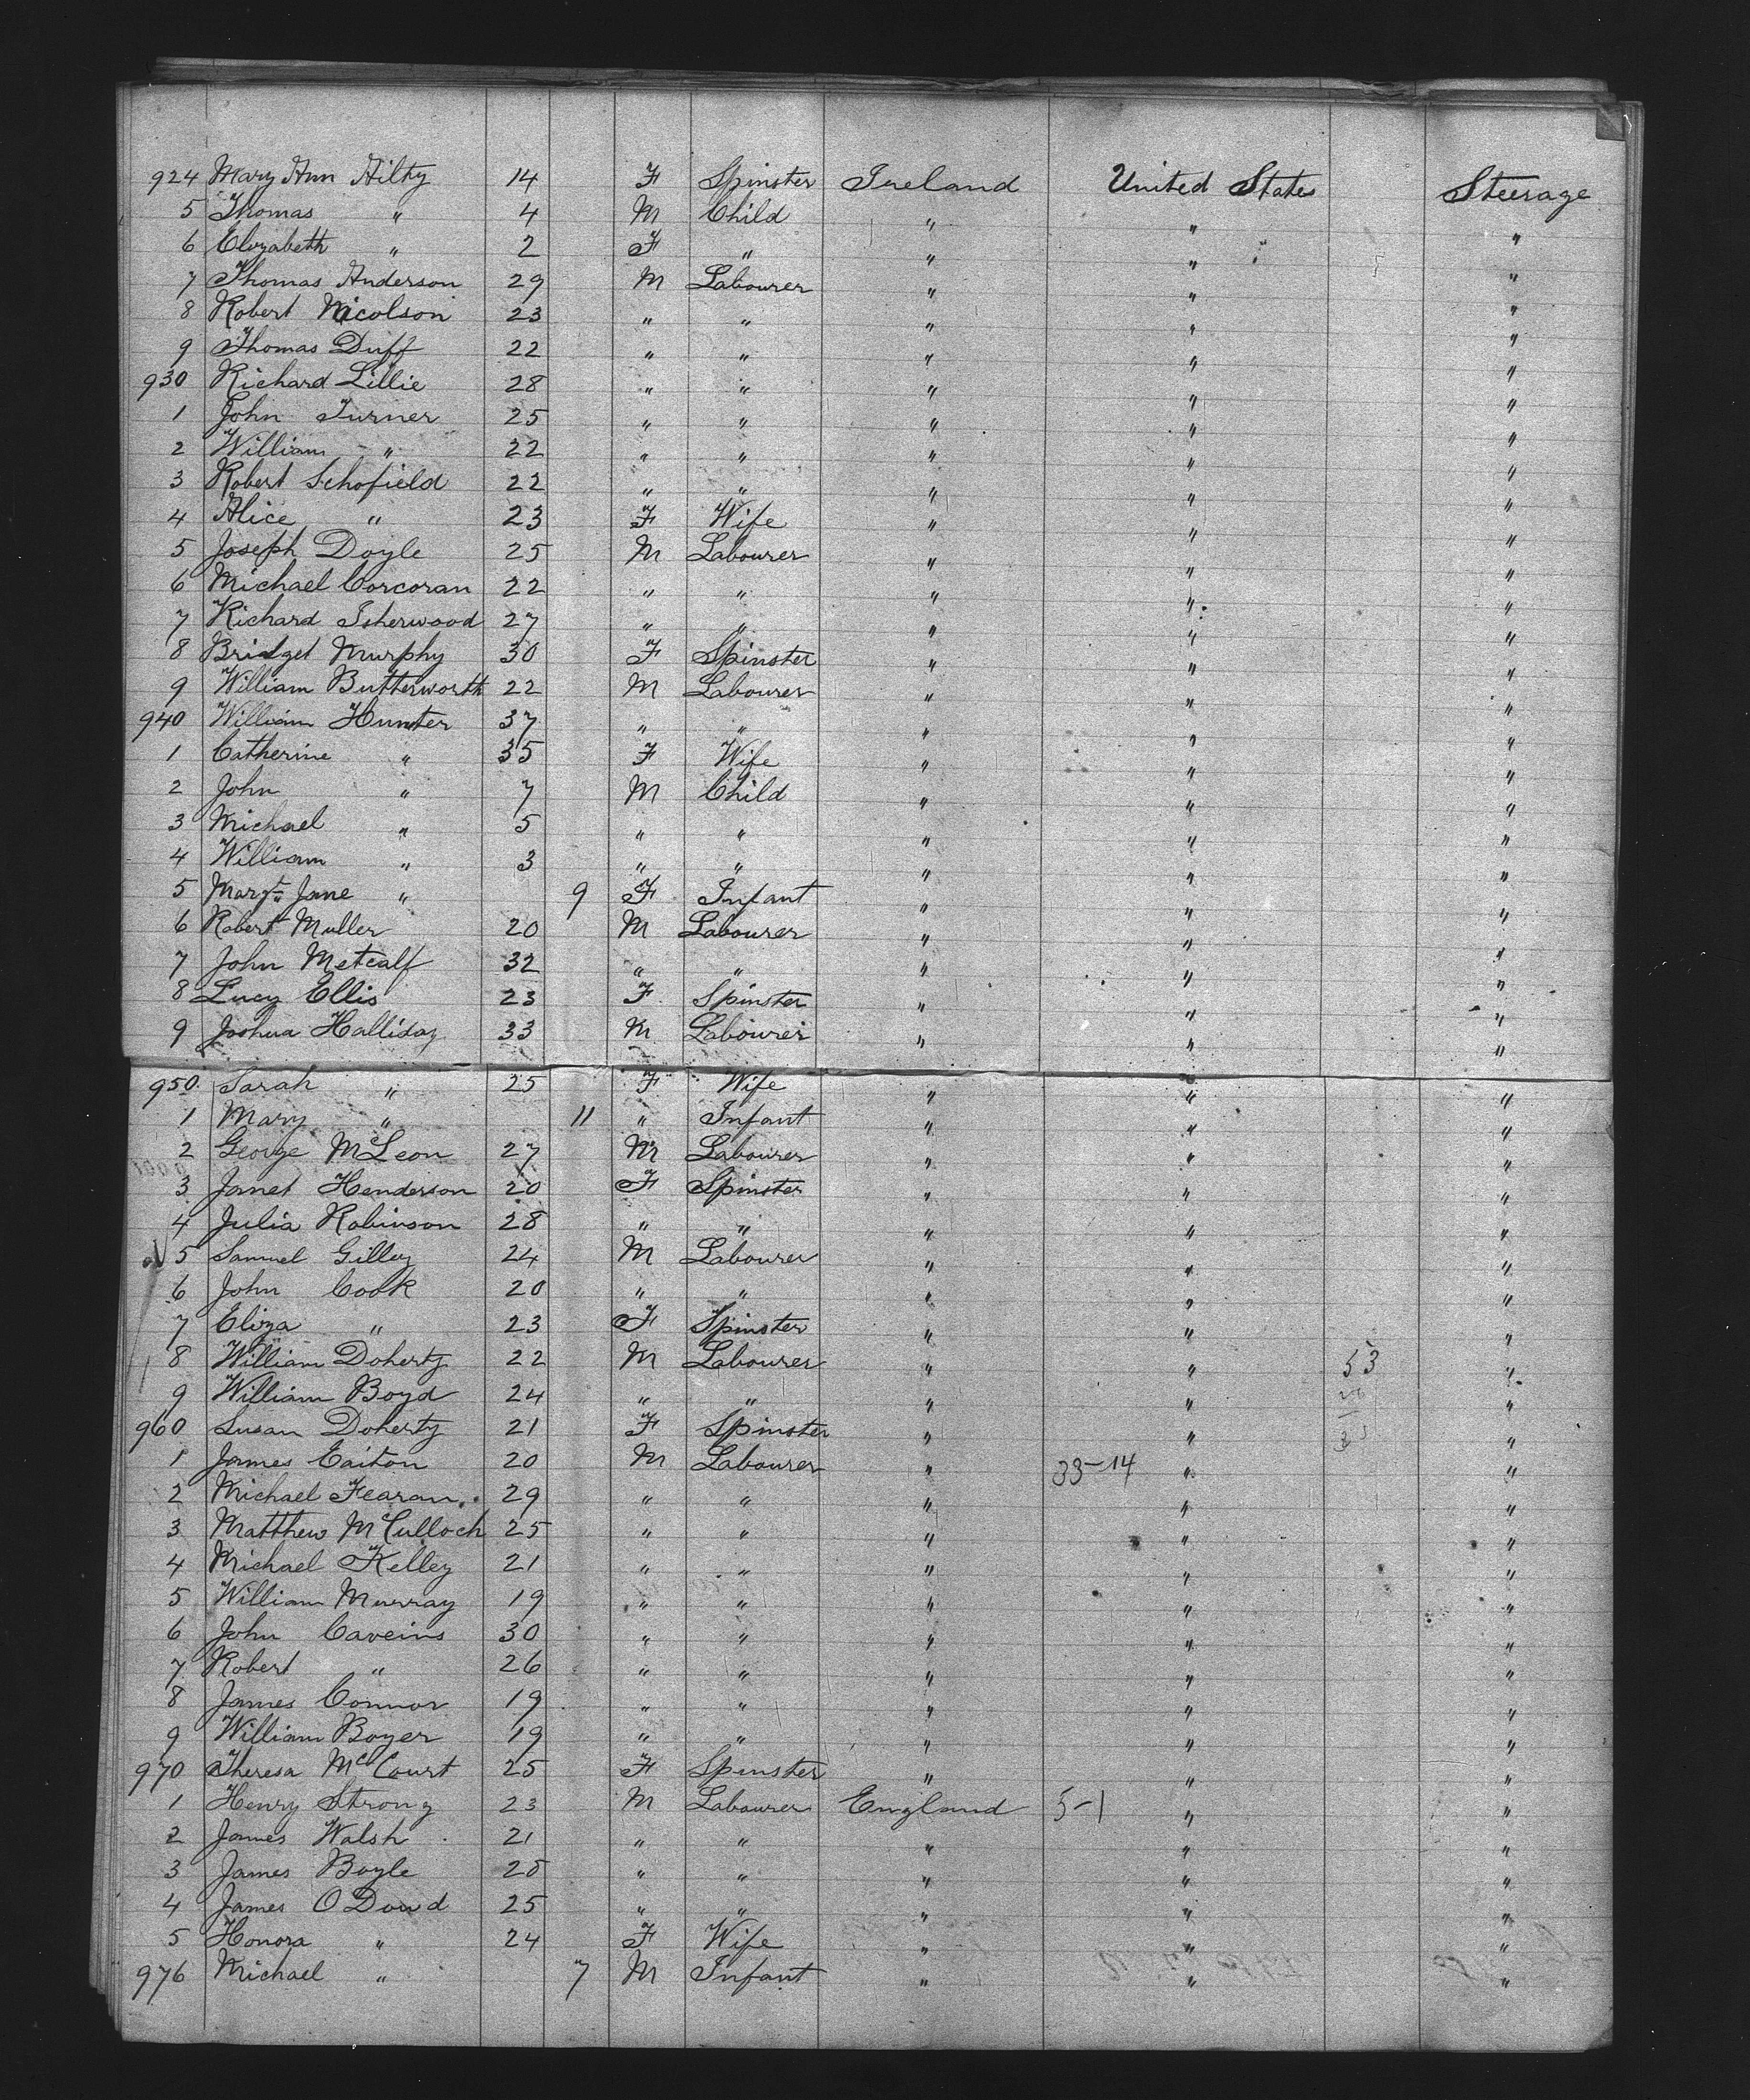 924 Mary Ann Hilty 14 F Spinster Ireland United States Steerage
5 Thomas " 4 M Child " " "
6 Elizabeth " 2 F " " " "
7 Thomas Anderson 29 M Labourer " " "
8 Robert Nicolson 23 " " " " "
9 Thomas Duff 22 " " " " "
930 Richard Lillie 28 " " " " "
1 John Turner 25 " " " " "
2 William " 22 " " " " "
3 Robert Schofield 22 " " " " "
4 Alice " 23 F Wife " " "
5 Joseph Doyle 25 M Labourer " " "
6 Michael Corcoran 22 " " " " "
7 Richard Isherwood 27 " " " " "
8 Bridget Murphy 30 F Spinster " " "
9 William Butterworth 22 M Labourer " " "
940 William Hunter 37 " " " " "
1 Catherine " 35 F Wife " " "
2 John " 7 M Child " " "
3 Michael " 5 " " " " "
4 William " 3 " " " " "
5 Margt. Jane " 9 F Infant " " "
6 Robert Muller 20 M Labourer " " "
7 John Metcalf 32 " " " " "
8 Lucy Ellis 23 F Spinster " " "
9 Joshua Halliday 33 M Labourer " " "
950 Sarah " 25 F Wife " " "
1 Mary " 11 " Infant " " "
2 George McLeon 27 M Labourer " " "
3 Janet Henderson 20 F Spinster " " "
4 Julia Robinson 28 " " " " "
5 Samuel Gilley 24 M Labourer " " "
6 John Cook 20 " " " " "
7 Eliza " 23 F Spinster " " "
8 William Doherty 22 M Labourer " " 53 "
9 William Boyd 24 " " " " "
960 Susan Doherty 21 F Spinster " " "
1 James Caiton 20 M Labourer " 33-14 " "
2 Michael Fearan 29 " " " " "
3 Matthew McCulloch 25 " " " " "
4 Michael Kelley 21 " " " " "
5 William Murray 19 " " " " "
6 John Caveins 30 " " " " "
7 Robert " 26 " " " " "
8 James Connor 19 " " " " "
9 William Boyer 19 " " " " "
970 Theresa McCourt 25 F Spinster " " "
1 Henry Strong 23 M Labourer England 5-1 " "
2 James Walsh 21 " " " " "
3 James Boyle 25 " " " " "
4 James O Dowd 25 " " " " "
5 Honora " 24 F Wife " " "
976 Michael " 7 M Infant " " "